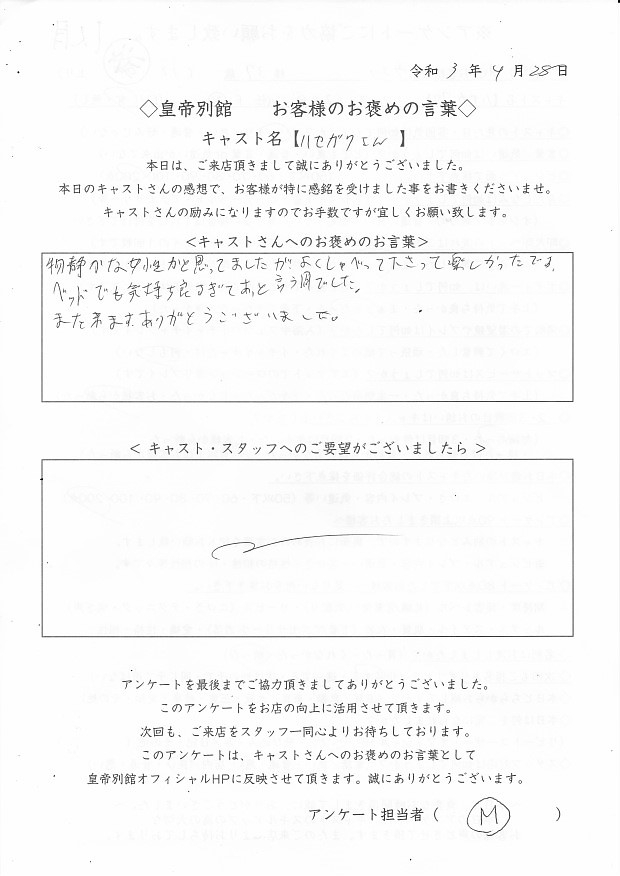 令和 3 年 4 月 28 日
◇皇帝別館 お客様のお褒めの言葉◇
キャスト名【ハセガワさん 】
本日は、ご来店頂きまして誠にありがとうございました。
本日のキャストさんの感想で、お客様が特に感銘を受けました事をお書きくださいませ。
キャストさんの励みになりますのでお手数ですが宜しくお願い致します。
<キャストさんへのお褒めのお言葉>
物静かな女性かと思ってましたが、よくしゃべって下さって楽しかったです。
ベッドでも気持ち良すぎてあと言う間でした。
また来ます。ありがとうございました。
< キャスト・スタッフへのご要望がございましたら >
アンケートを最後までご協力頂きましてありがとうございました。
このアンケートをお店の向上に活用させて頂きます。
次回も、ご来店をスタッフ一同心よりお待ちしております。
このアンケートは、キャストさんへのお褒めのお言葉として
皇帝別館オフィシャルHPに反映させて頂きます。誠にありがとうございます。
アンケート担当者 ( M )